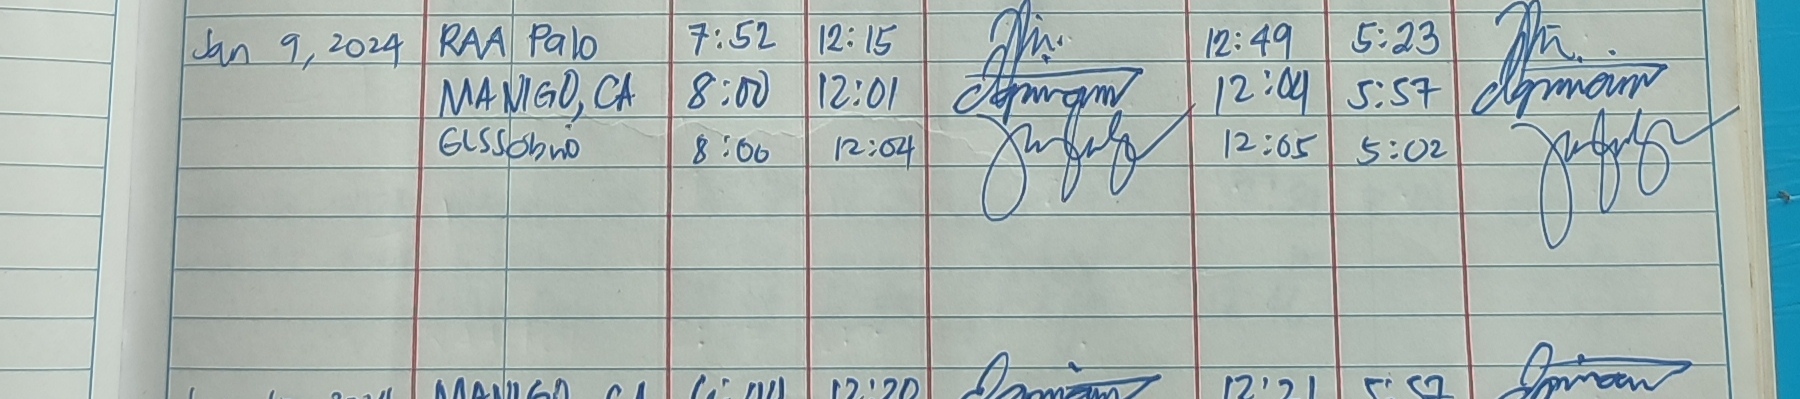 Jan 9, 2024 RAA Palo 7:52 12:15 12:49 5:23
MANIGO, CA 8:00 12:01 12:04 5:57
8:00 12:04 12:05 5:02
MANIGO, CA 12:20 12:21 5:57